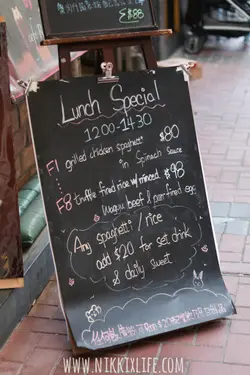 $88
Lunch Special
12:00-14:30
F1 grilled chicken spaghetti $80
in Spinach Sauce
F8 truffle fried rice w/ minced $98
Wagyu beef & pan fried egg
Any spaghetti / rice
add $20 for set drink
& daily sweet
WWW.NIKKIXLIFE.COM